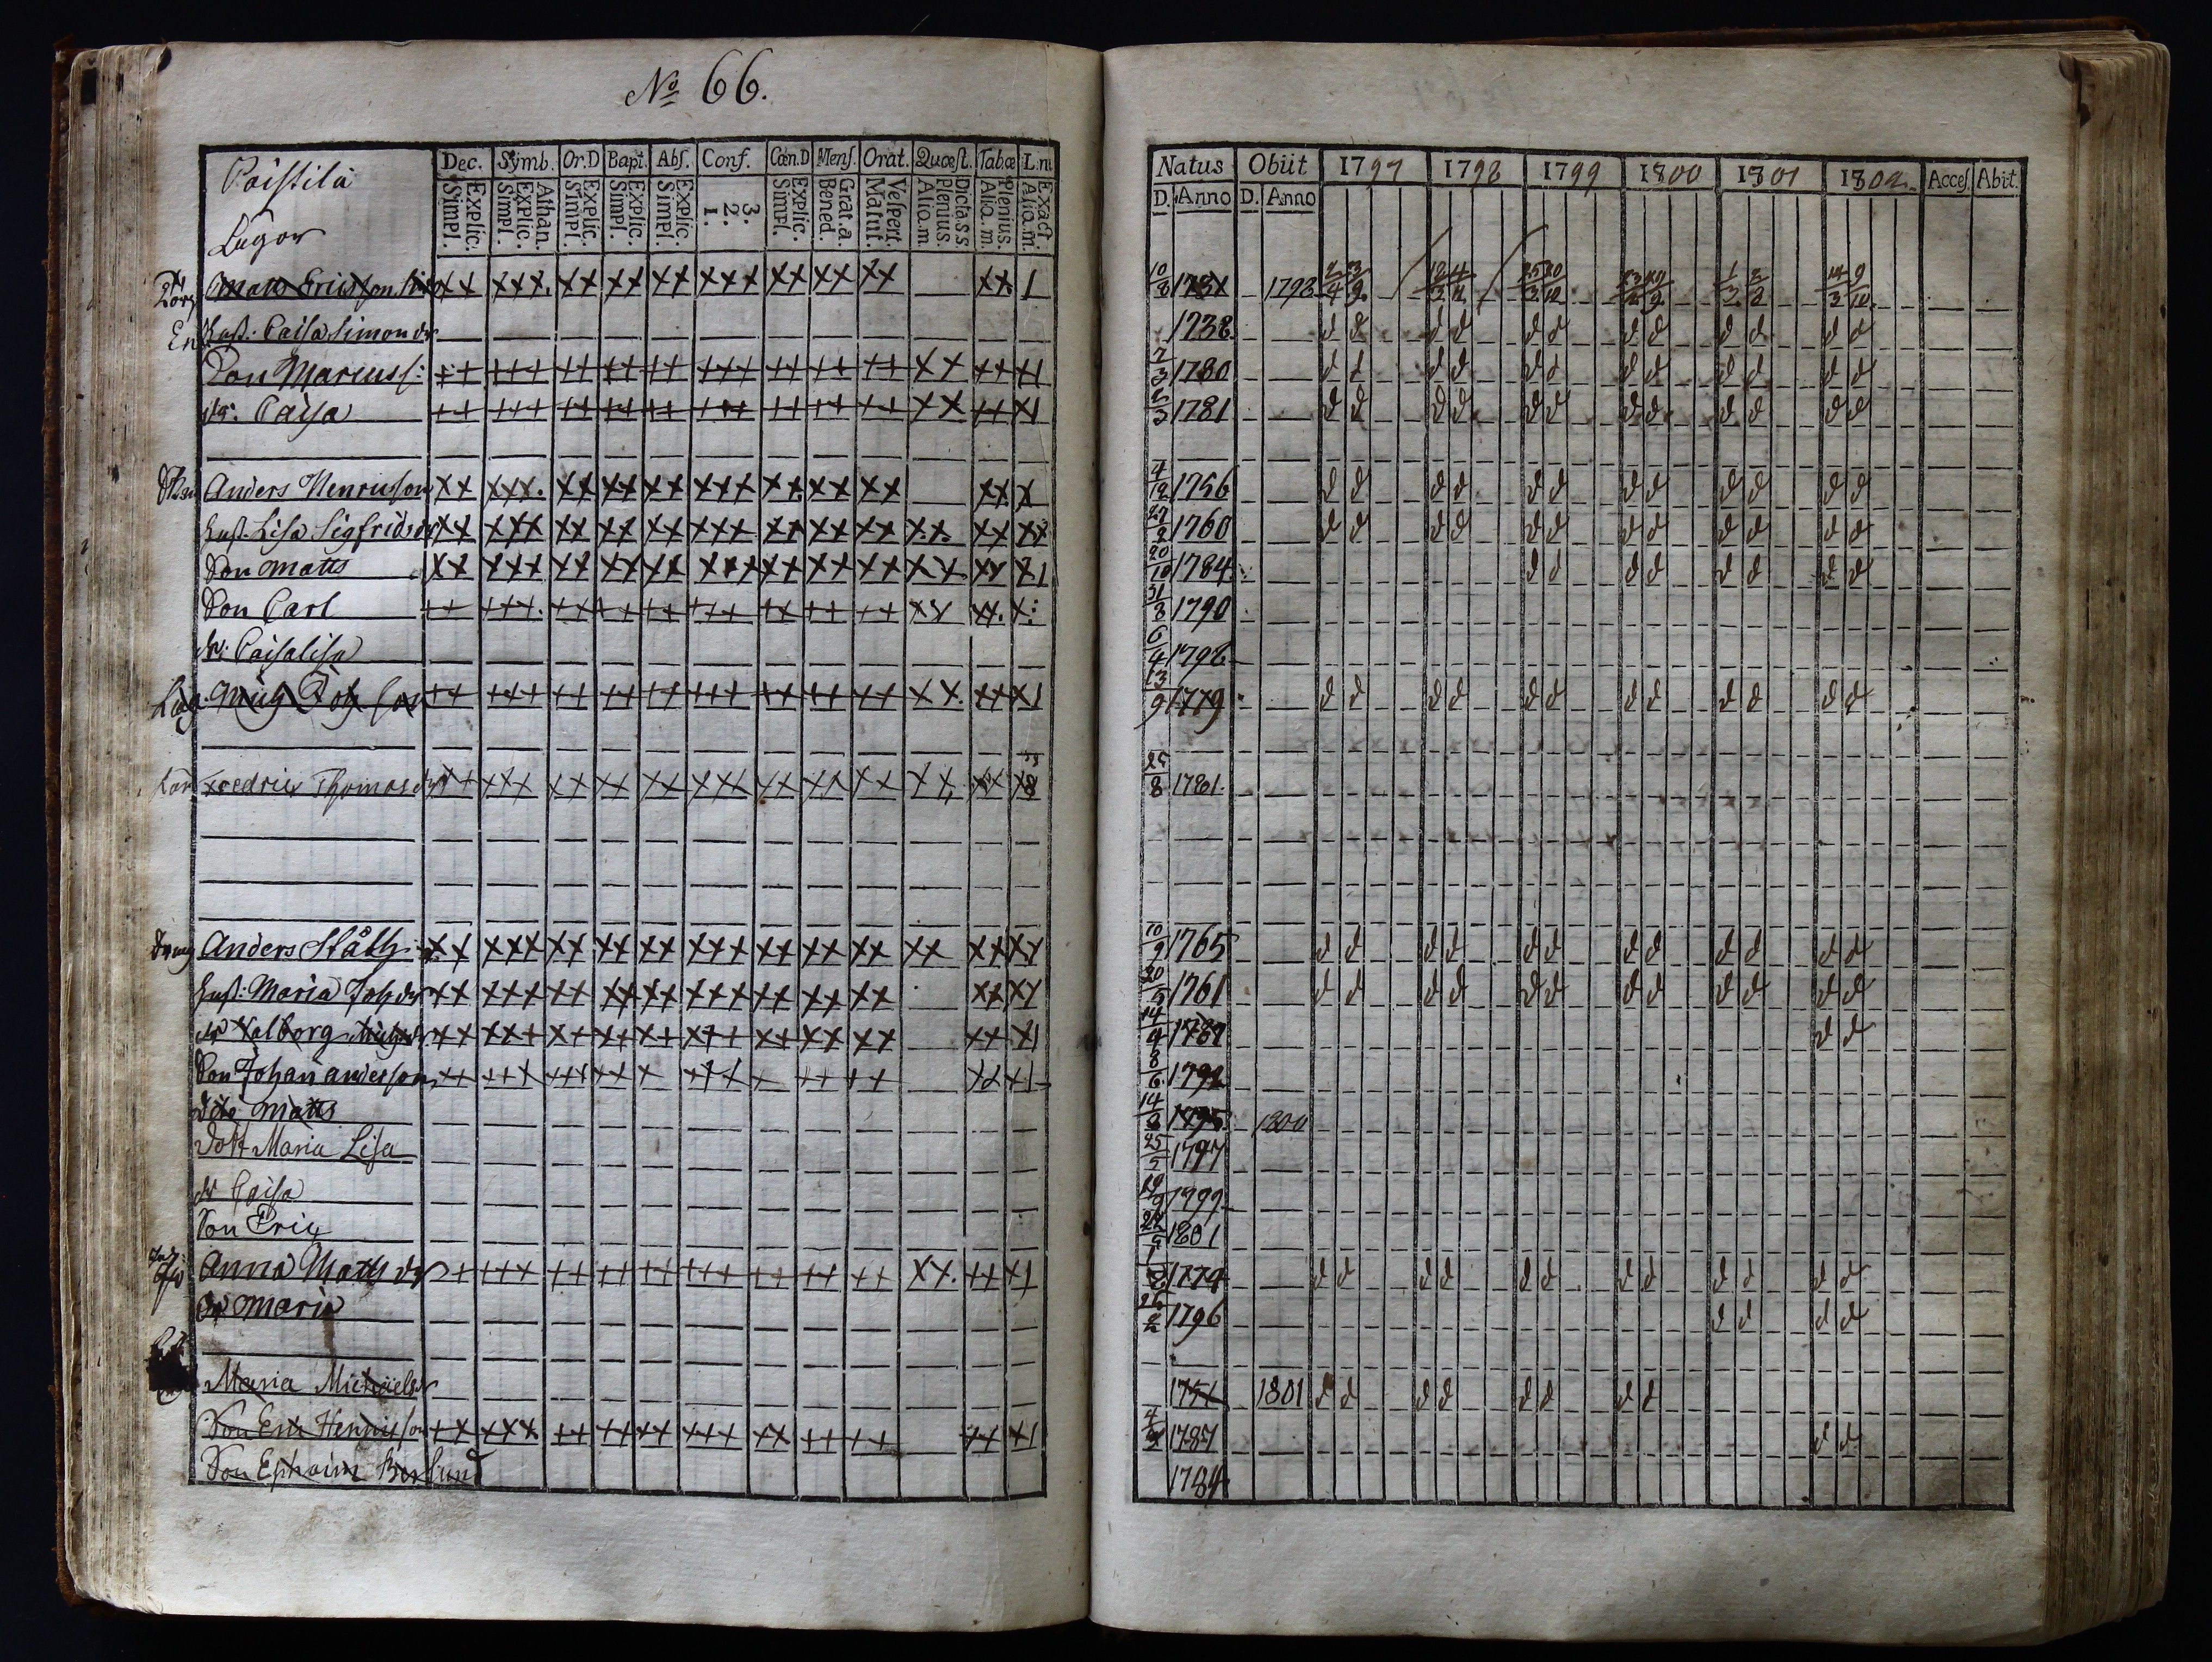 No 66.
Poistila
Lugor
Dec. Symb. Or.D Bapt. Abs. Conf. Cœn.D Mens. Orat. Quæst. Tab.œ L.m.
Explic. Simpl. Athan. Explic. Simpl. Explic. Simpl. Explic. Simpl. Explic. Simpl. 3. 2. 1. Explic. Simpl. Grat.a. Bened. Vespert. Matut. Dicta.s.s. Plenius. Aliq.m. Plenius. Aliq.m. Exact. Aliq.m.
Natus Obiit 1797 1798 1799 1800 1801 1802 Acces. Abit.
D. Anno D. Anno
Matts Ericsson xx xxx. xx xx xx xxx xx xx xx xx. 1 10/8 1731 1798
Enk. Hust. Caisa Simon dr 1738 d d d d d d d d d d d d
Son Marcus s: ++ +++ ++ ++ ++ +++ ++ ++ ++ xx ++ +1 7/3 1780 d d d d d d d d d d d d
Caisa ++ +++ ++ ++ ++ +++ ++ ++ ++ xx ++ x1 1781 d d d d d d d d d d d d
Anders Henricson xx xxx. xx xx xx xxx xx xx xx xx x 4/12 1756 d d d d d d d d d d d d
Hust. Lisa Sigfrids dr xx xxx xx xx xx xxx xx xx xx x.x. xx xx 27/2 1760 d d d d d d d d d d d d
Son Matts xx xxx xx xx xx xxx xx xx xx xx xx x1 20/10 1784 d d d d d d d d
Son Carl ++ +++. ++ ++ ++ +++ ++ ++ ++ xx xx. x: 31/8 1790
dr: Caisalisa 6/4 1798
Mich Joh son ++ +++ ++ ++ ++ +++ ++ ++ ++ xx. ++ x1 13/9 1779 d d d d d d d d d d d d
Fredric Thomas dr xx xxx xx xx xx xxx xx xx xx xx xx x8 25/8 1781.
Dräng Anders Ståth xx xxx xx xx xx xxx xx xx xx xx xx xx 10/9 1765 d d d d d d d d d d d d
Hust: Maria Joh dr xx xxx xx xx xx xxx xx xx xx xx xx 20/5 1761 d d d d d d d d d d d d
dr Valborg Mich dr xx xx+ x+ ++ x+ x++ x+ xx xx ++ x1 14/4 1787 d d
Son Johan anderson ++ ++x +++ ++ x +++ x ++ ++ xx +1 8/6 1792
Dito Matts 14/8 1795 1800
Dott Maria Lisa 25/5 1797
dr Caisa 19/9 1799
Son Eric 22/5 1801
Anna Matts dr ++ +++ ++ ++ ++ +++ ++ ++ ++ xx. ++ x1 1774 d d d d d d d d d d d d
dr Maria 26/2 1796 d d d d
Maria Michaels dr 1751 1801 d d d d d d d d
Son Eric Henricsson ++ xxx ++ ++ ++ +++ ++ ++ ++ ++ +1 1787 d d
Son Ephraim Berlund 1784